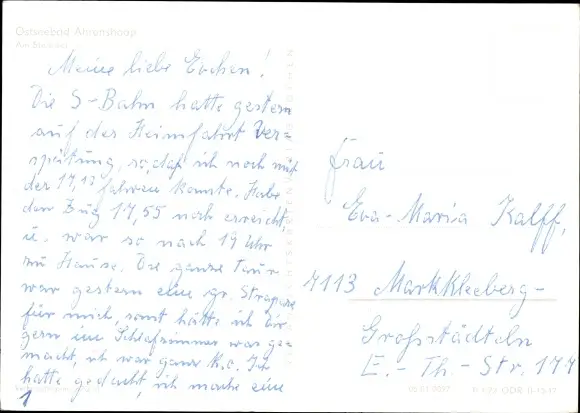 Ostseebad Ahrenshoop
Meine liebe Evchen!
Die S-Bahn hatte gestern
auf der Heimfahrt Ver=
spätung, so, daß ich noch mit
der 17,13 fahren konnte. Habe
den Zug 17,55 noch erreicht
u. war so nach 19 Uhr
zu Hause. Die ganze Tour
war gestern eine gr. Strapaze
für mich, sonst hätte ich Dir
gern im Schlafzimmer was ge=
macht, ich war ganz k.o. Ich
hatte gedacht, ich mache eine
1
Frau
Eva-Maria Kalff,
7113 Markkleeberg-
Großstädteln
E.-Th.-Str. 177